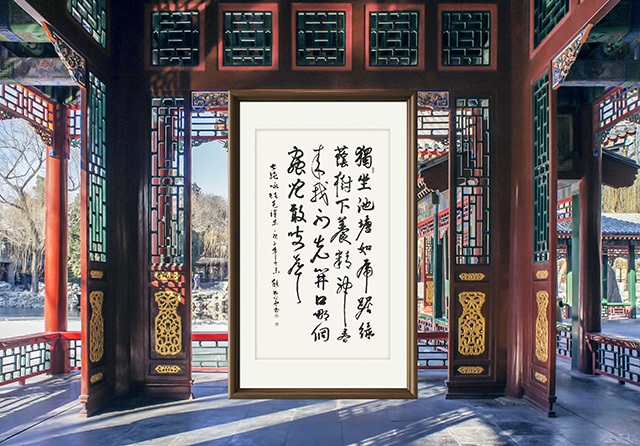 獨坐池塘如虎踞綠
蔭樹下養精神春
來我不先開口哪個
蟲兒敢作聲
七絕